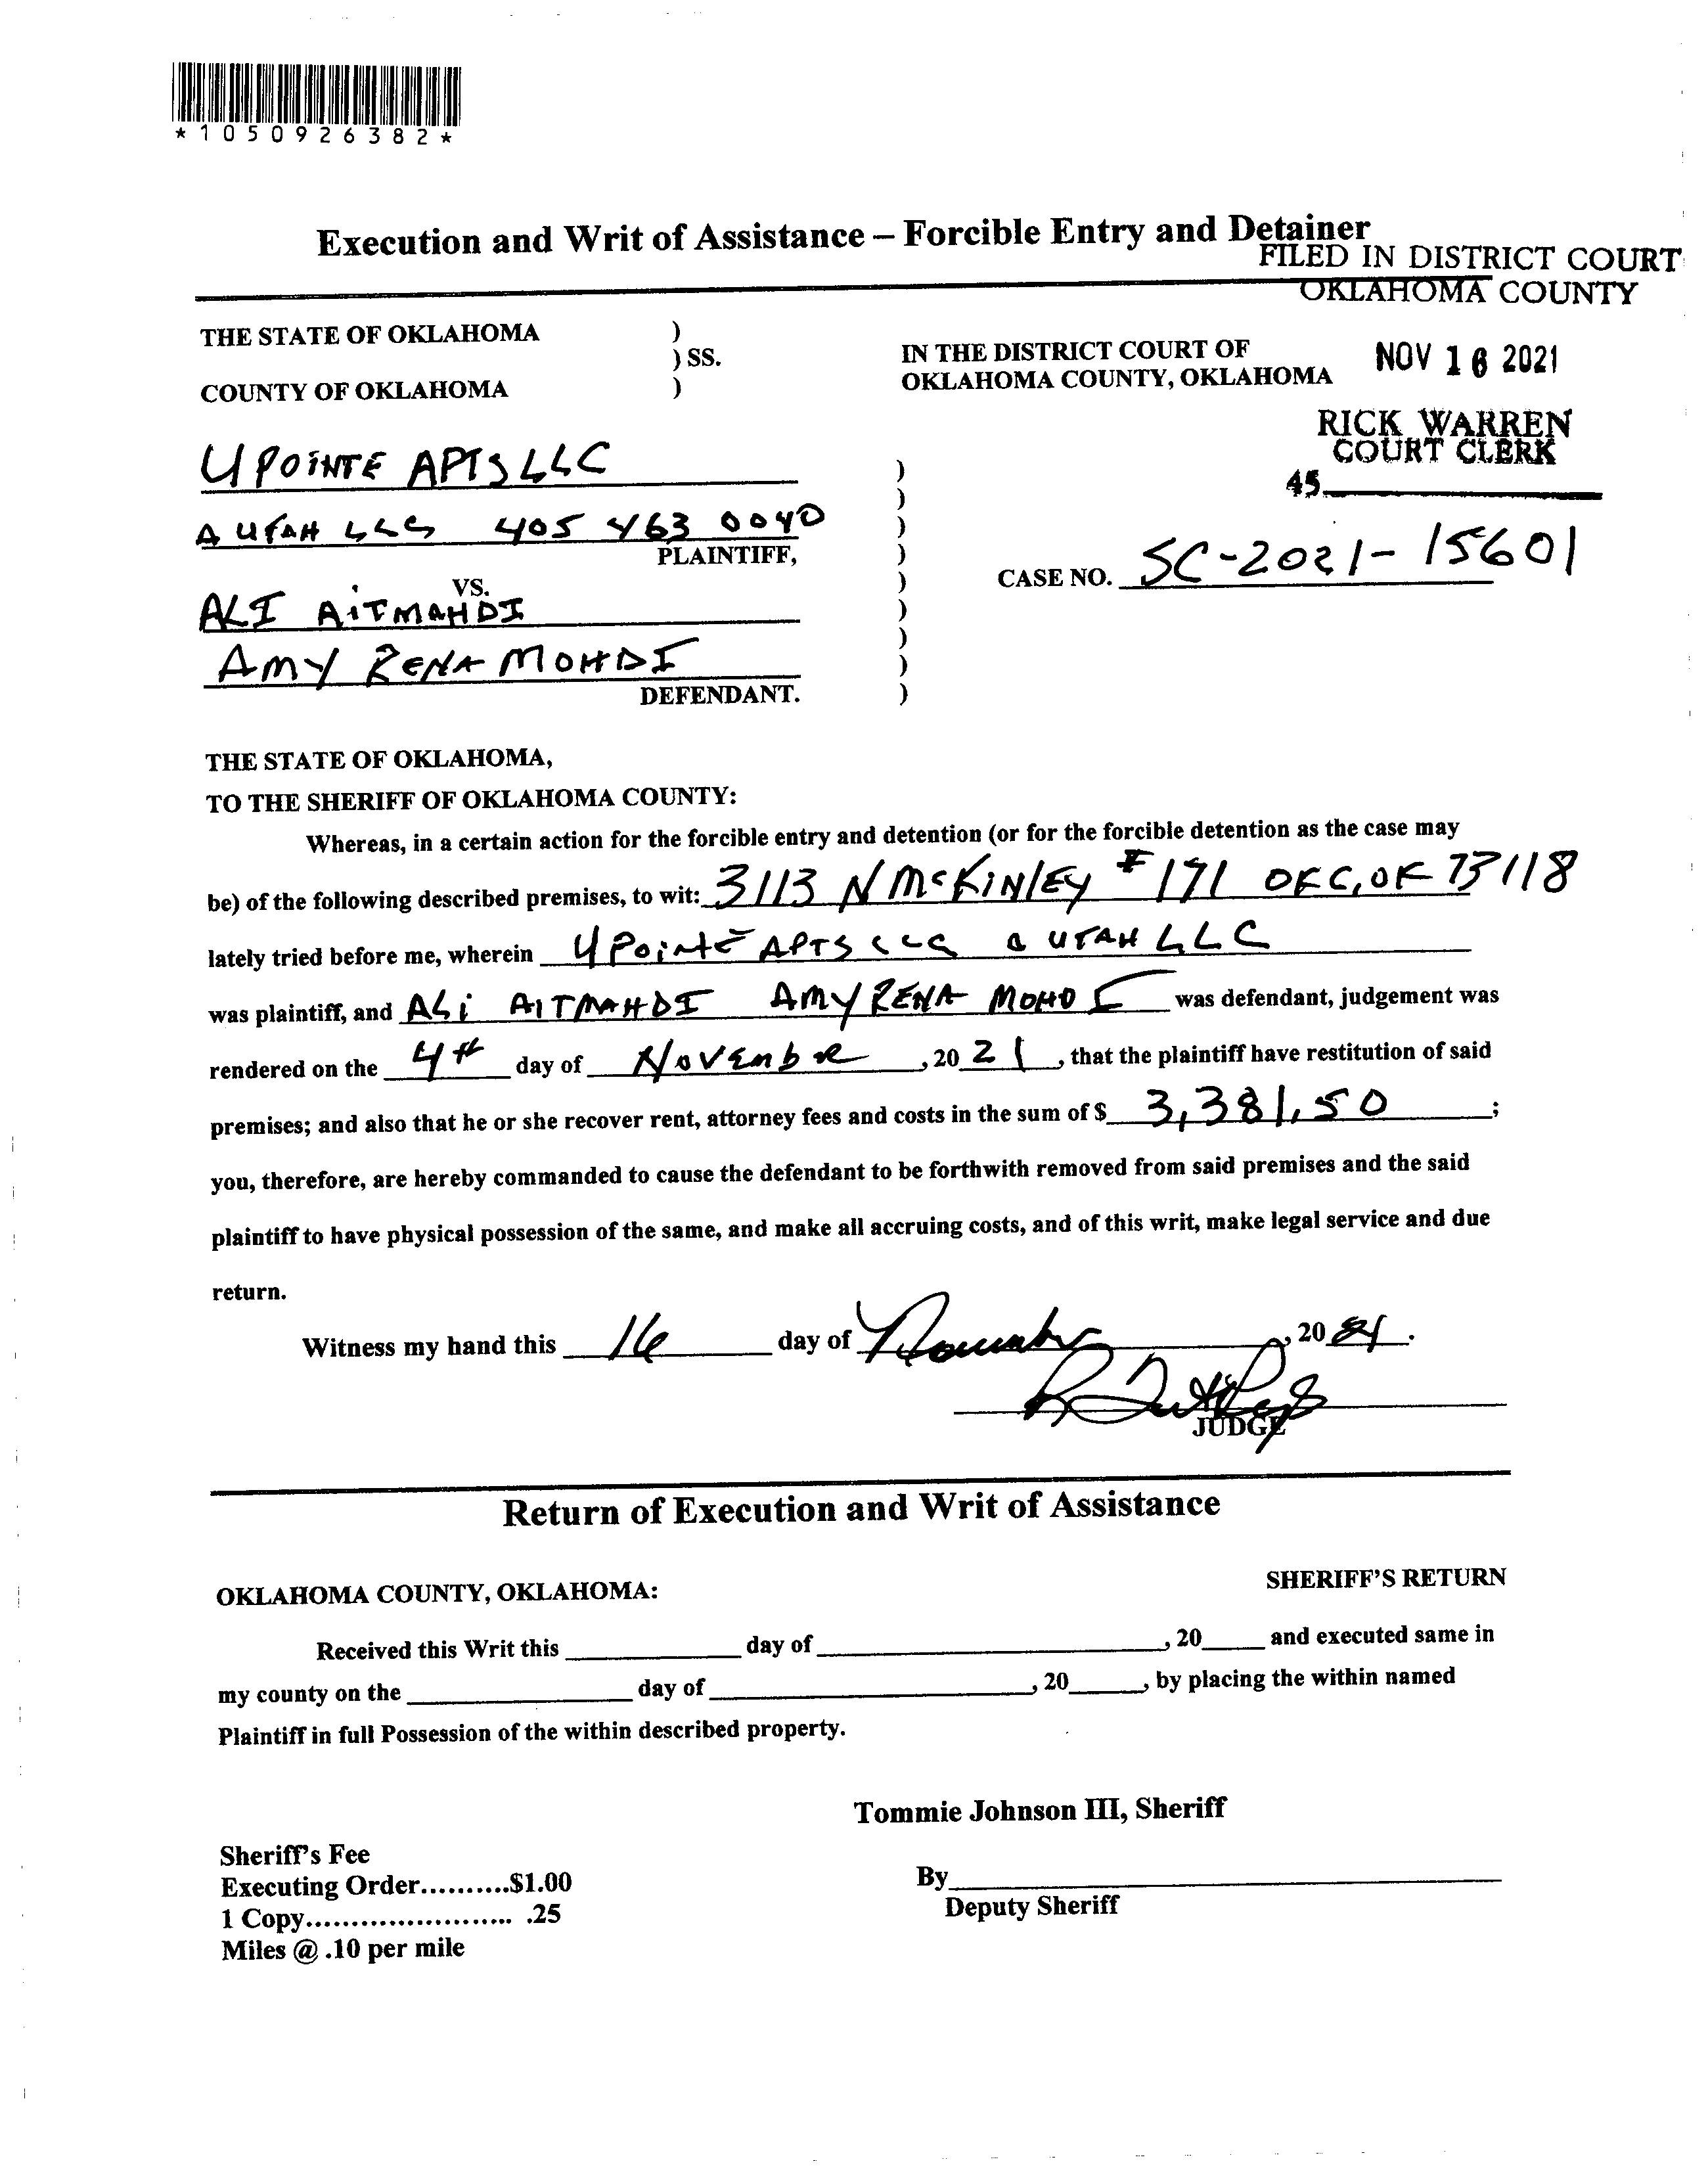 *1050926382*
Execution and Writ of Assistance – Forcible Entry and Detainer
FILED IN DISTRICT COURT
OKLAHOMA COUNTY
THE STATE OF OKLAHOMA )
) SS.
COUNTY OF OKLAHOMA )
IN THE DISTRICT COURT OF
OKLAHOMA COUNTY, OKLAHOMA
NOV 16 2021
RICK WARREN
COURT CLERK
45
U POINTE APTS LLC )
)
A UTAH LLC 405 463 0040 )
PLAINTIFF, )
CASE NO. SC-2021-15601
VS. )
ALI AITMAHDI )
)
AMY RENA MOHDI )
DEFENDANT. )
THE STATE OF OKLAHOMA,
TO THE SHERIFF OF OKLAHOMA COUNTY:
Whereas, in a certain action for the forcible entry and detention (or for the forcible detention as the case may
be) of the following described premises, to wit: 3113 N McKINlEY #171 OKC, OK 73118
lately tried before me, wherein U Pointe APTS LLC a UTAH LLC
was plaintiff, and ALi AITMAHDI AMY RENA MOHDI was defendant, judgement was
rendered on the 4th day of November, 2021, that the plaintiff have restitution of said
premises; and also that he or she recover rent, attorney fees and costs in the sum of $ 3,381.50;
you, therefore, are hereby commanded to cause the defendant to be forthwith removed from said premises and the said
plaintiff to have physical possession of the same, and make all accruing costs, and of this writ, make legal service and due
return.
Witness my hand this 16 day of November, 2021.
JUDGE
Return of Execution and Writ of Assistance
OKLAHOMA COUNTY, OKLAHOMA: SHERIFF'S RETURN
Received this Writ this ____ day of ____, 20____ and executed same in
my county on the ____ day of ____, 20____, by placing the within named
Plaintiff in full Possession of the within described property.
Tommie Johnson III, Sheriff
Sheriff's Fee
Executing Order..........$1.00
By____
1 Copy....................... .25
Deputy Sheriff
Miles @ .10 per mile